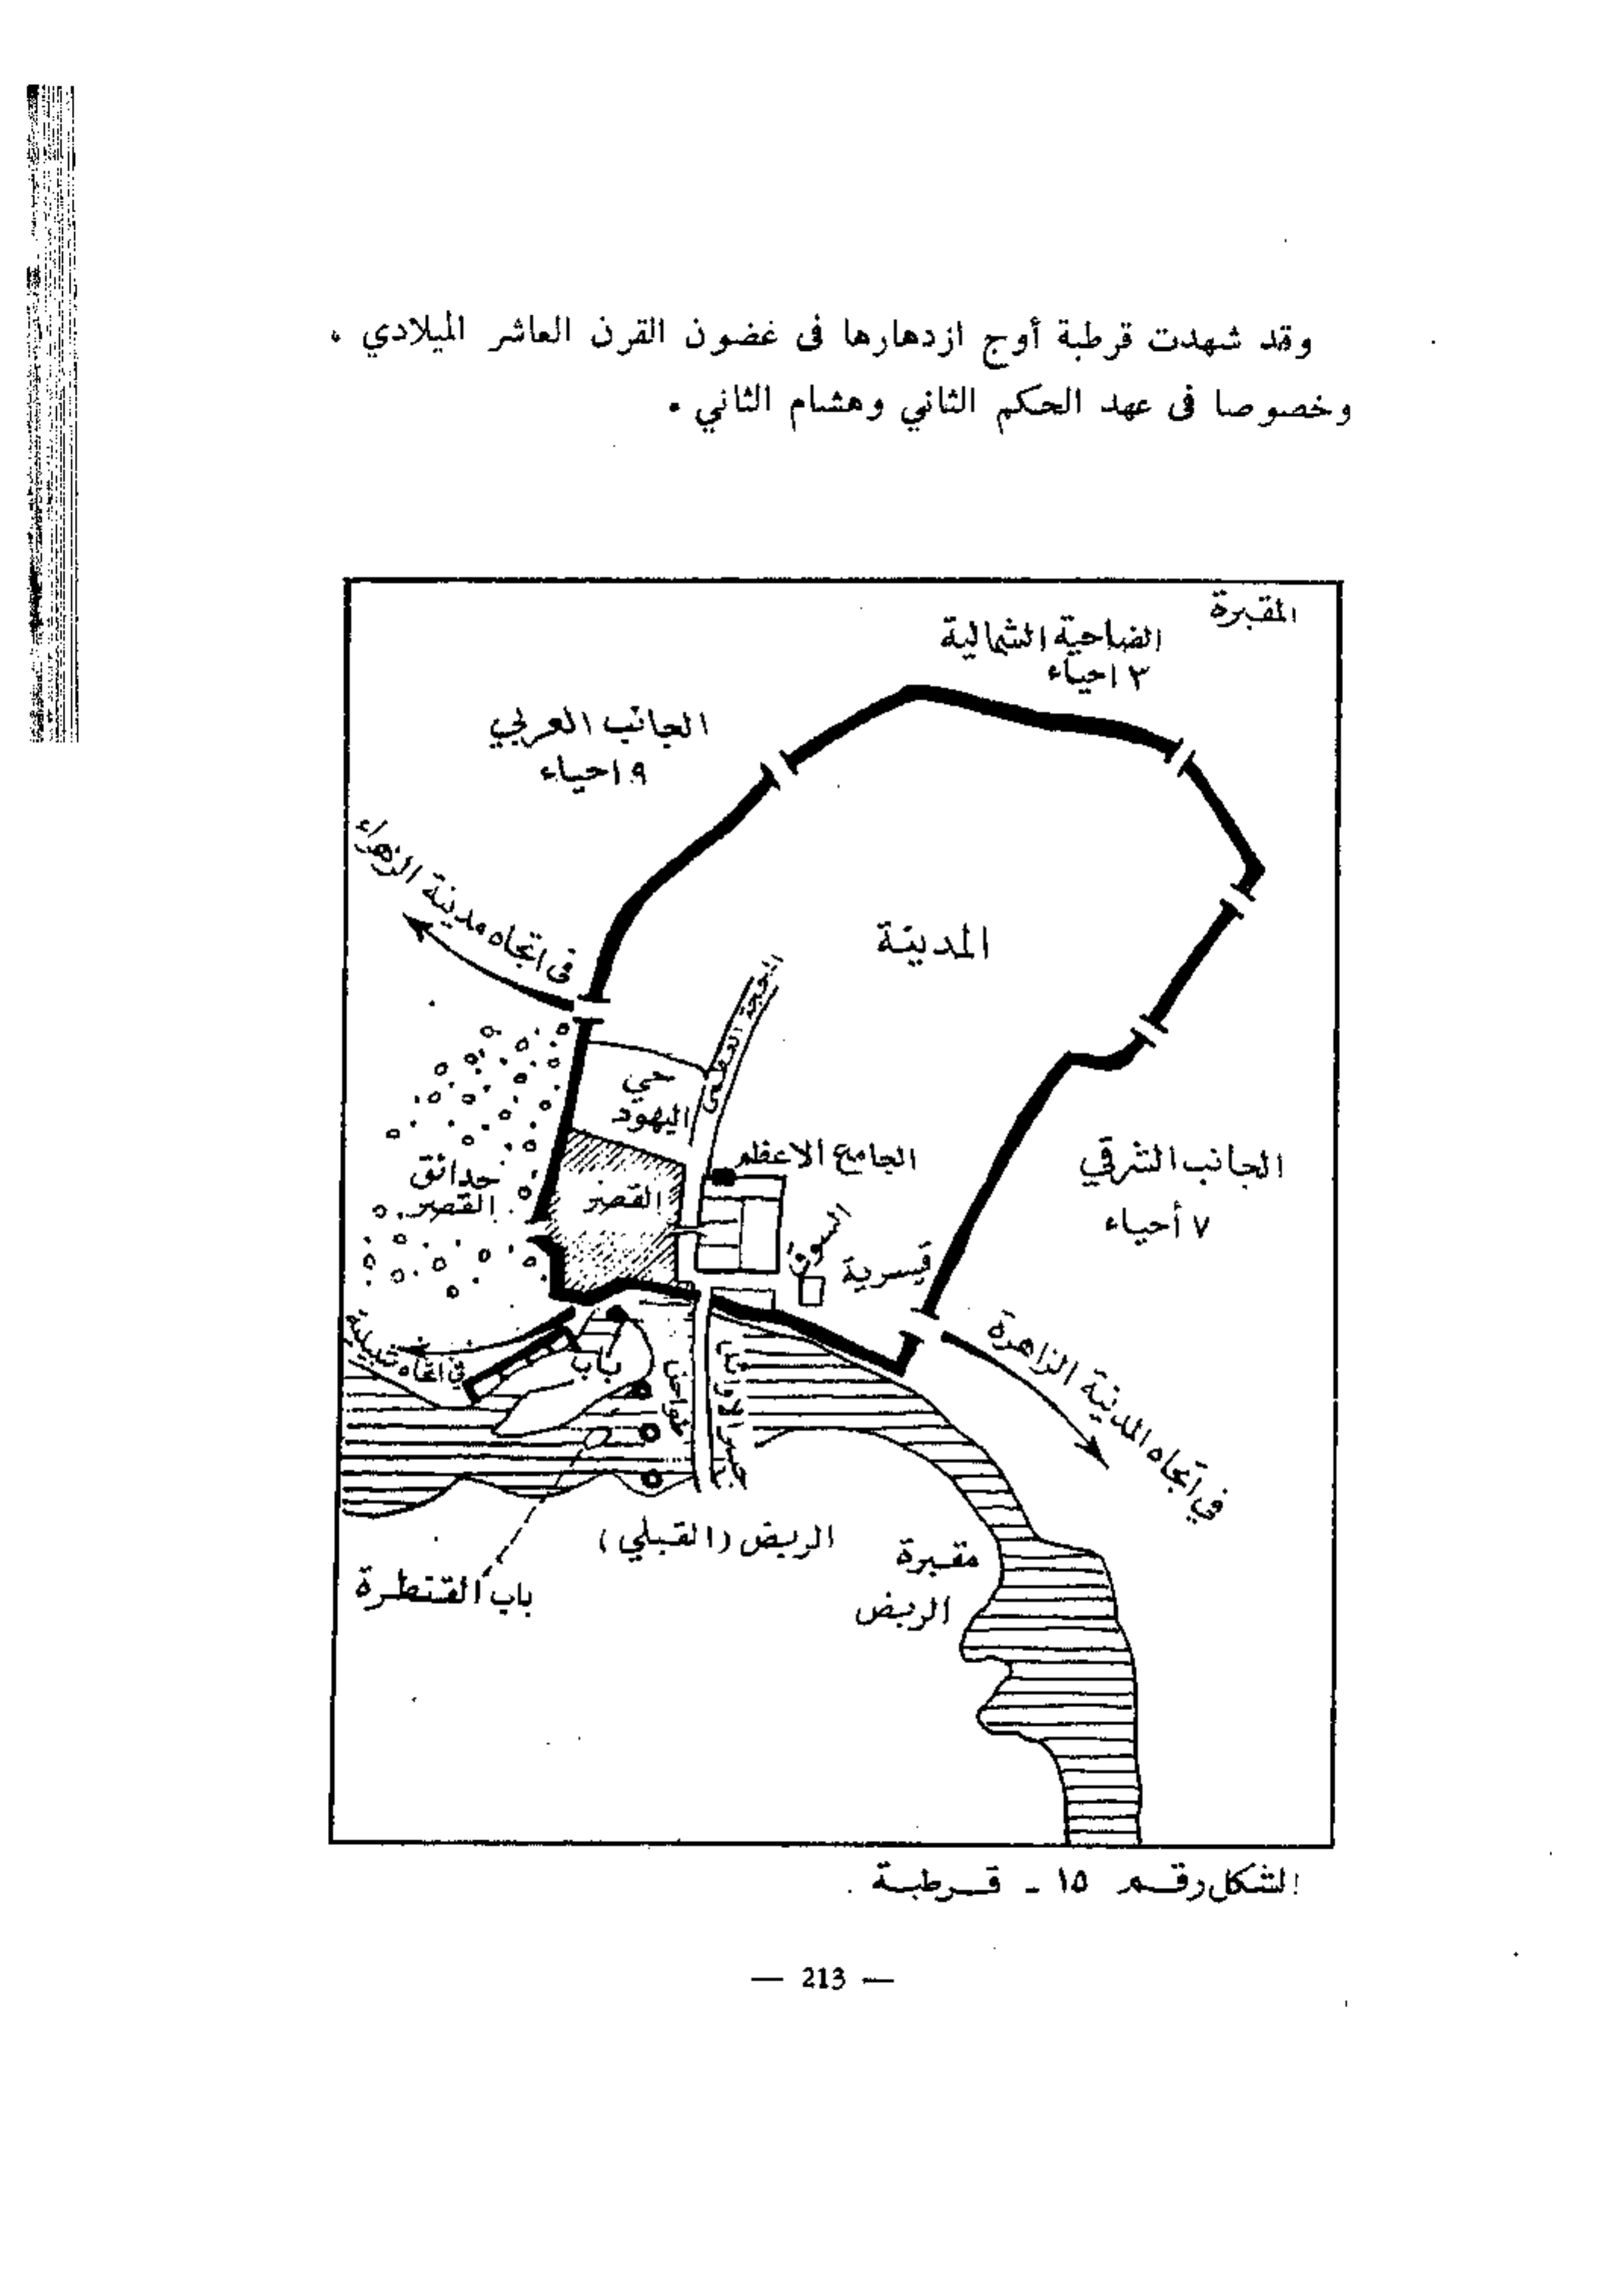 وقد شهدت قرطبة أوج ازدهارها فى غضون القرن العاشر الميلادي .
وخصوصا فى عهد الحكم الثاني وهشام الثاني .
المقبرة
الضاحية الشمالية
٣ احياء
الجانب العربي
٩ احياء
فى اتجاه مدينة الزهراء
المدينة
المحجة العظمى
حي
اليهود
الجامع الاعظم
الجانب الشرقي
٧ أحياء
حدائق
القصر
القصر
السوق
قيسرية
في اتجاه المدنية الزاهرة
في اتجاه
باب
الربض (القبلي)
مقبرة
الربض
باب القنطرة
الشكل رقم ١٥ - قرطبة
— 213 —